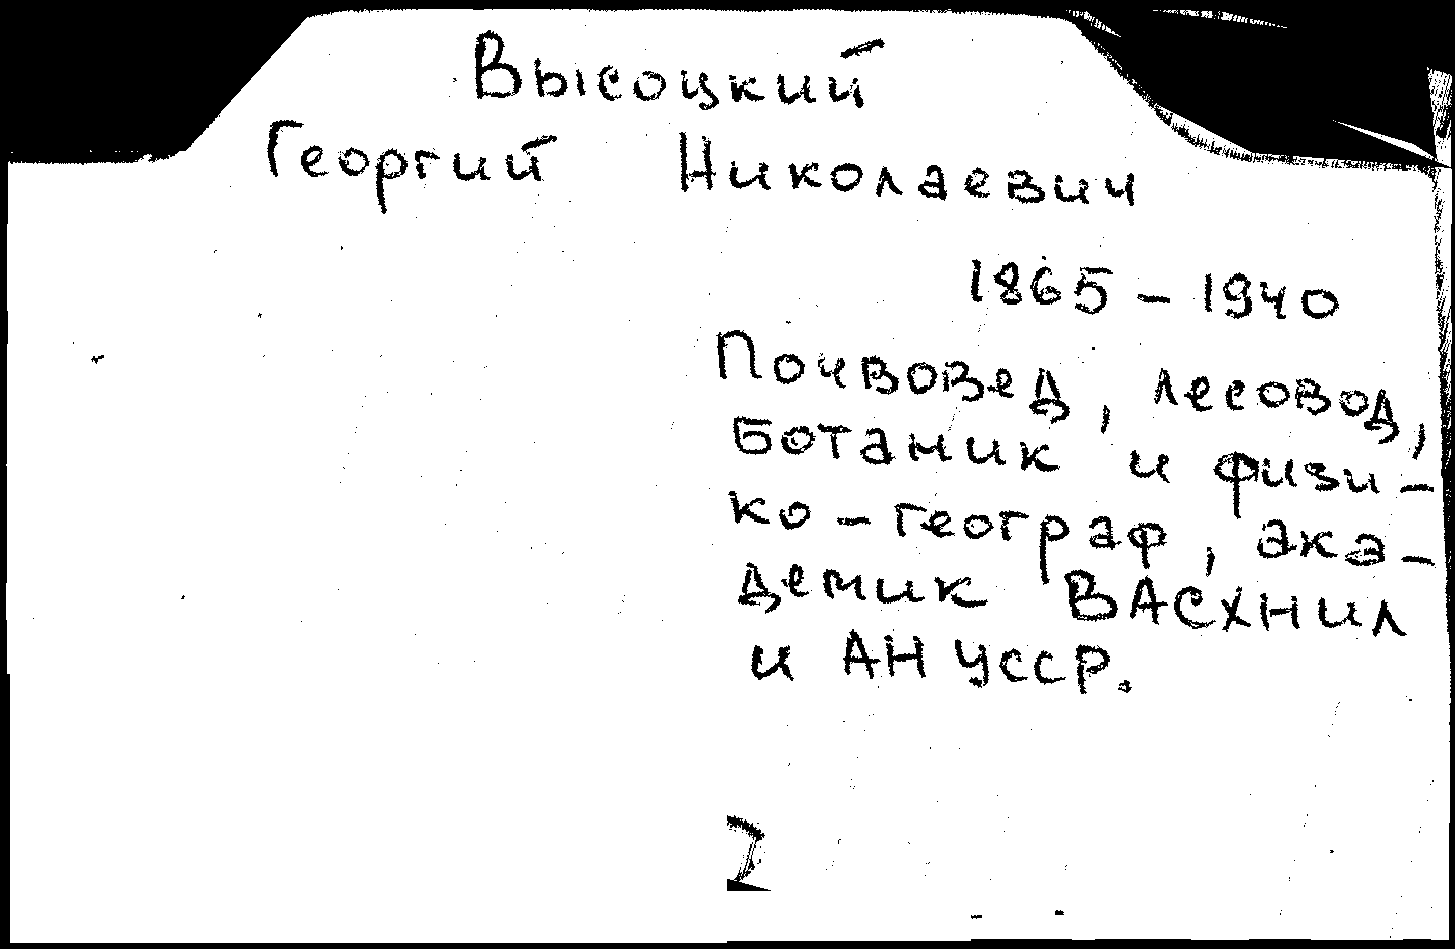 Высоцкий
Георгий Николаевич
1865 – 1940
Почвовед, лесовод,
ботаник и физи-
ко-географ, ака-
демик ВАСХНИЛ
и АН УССР.